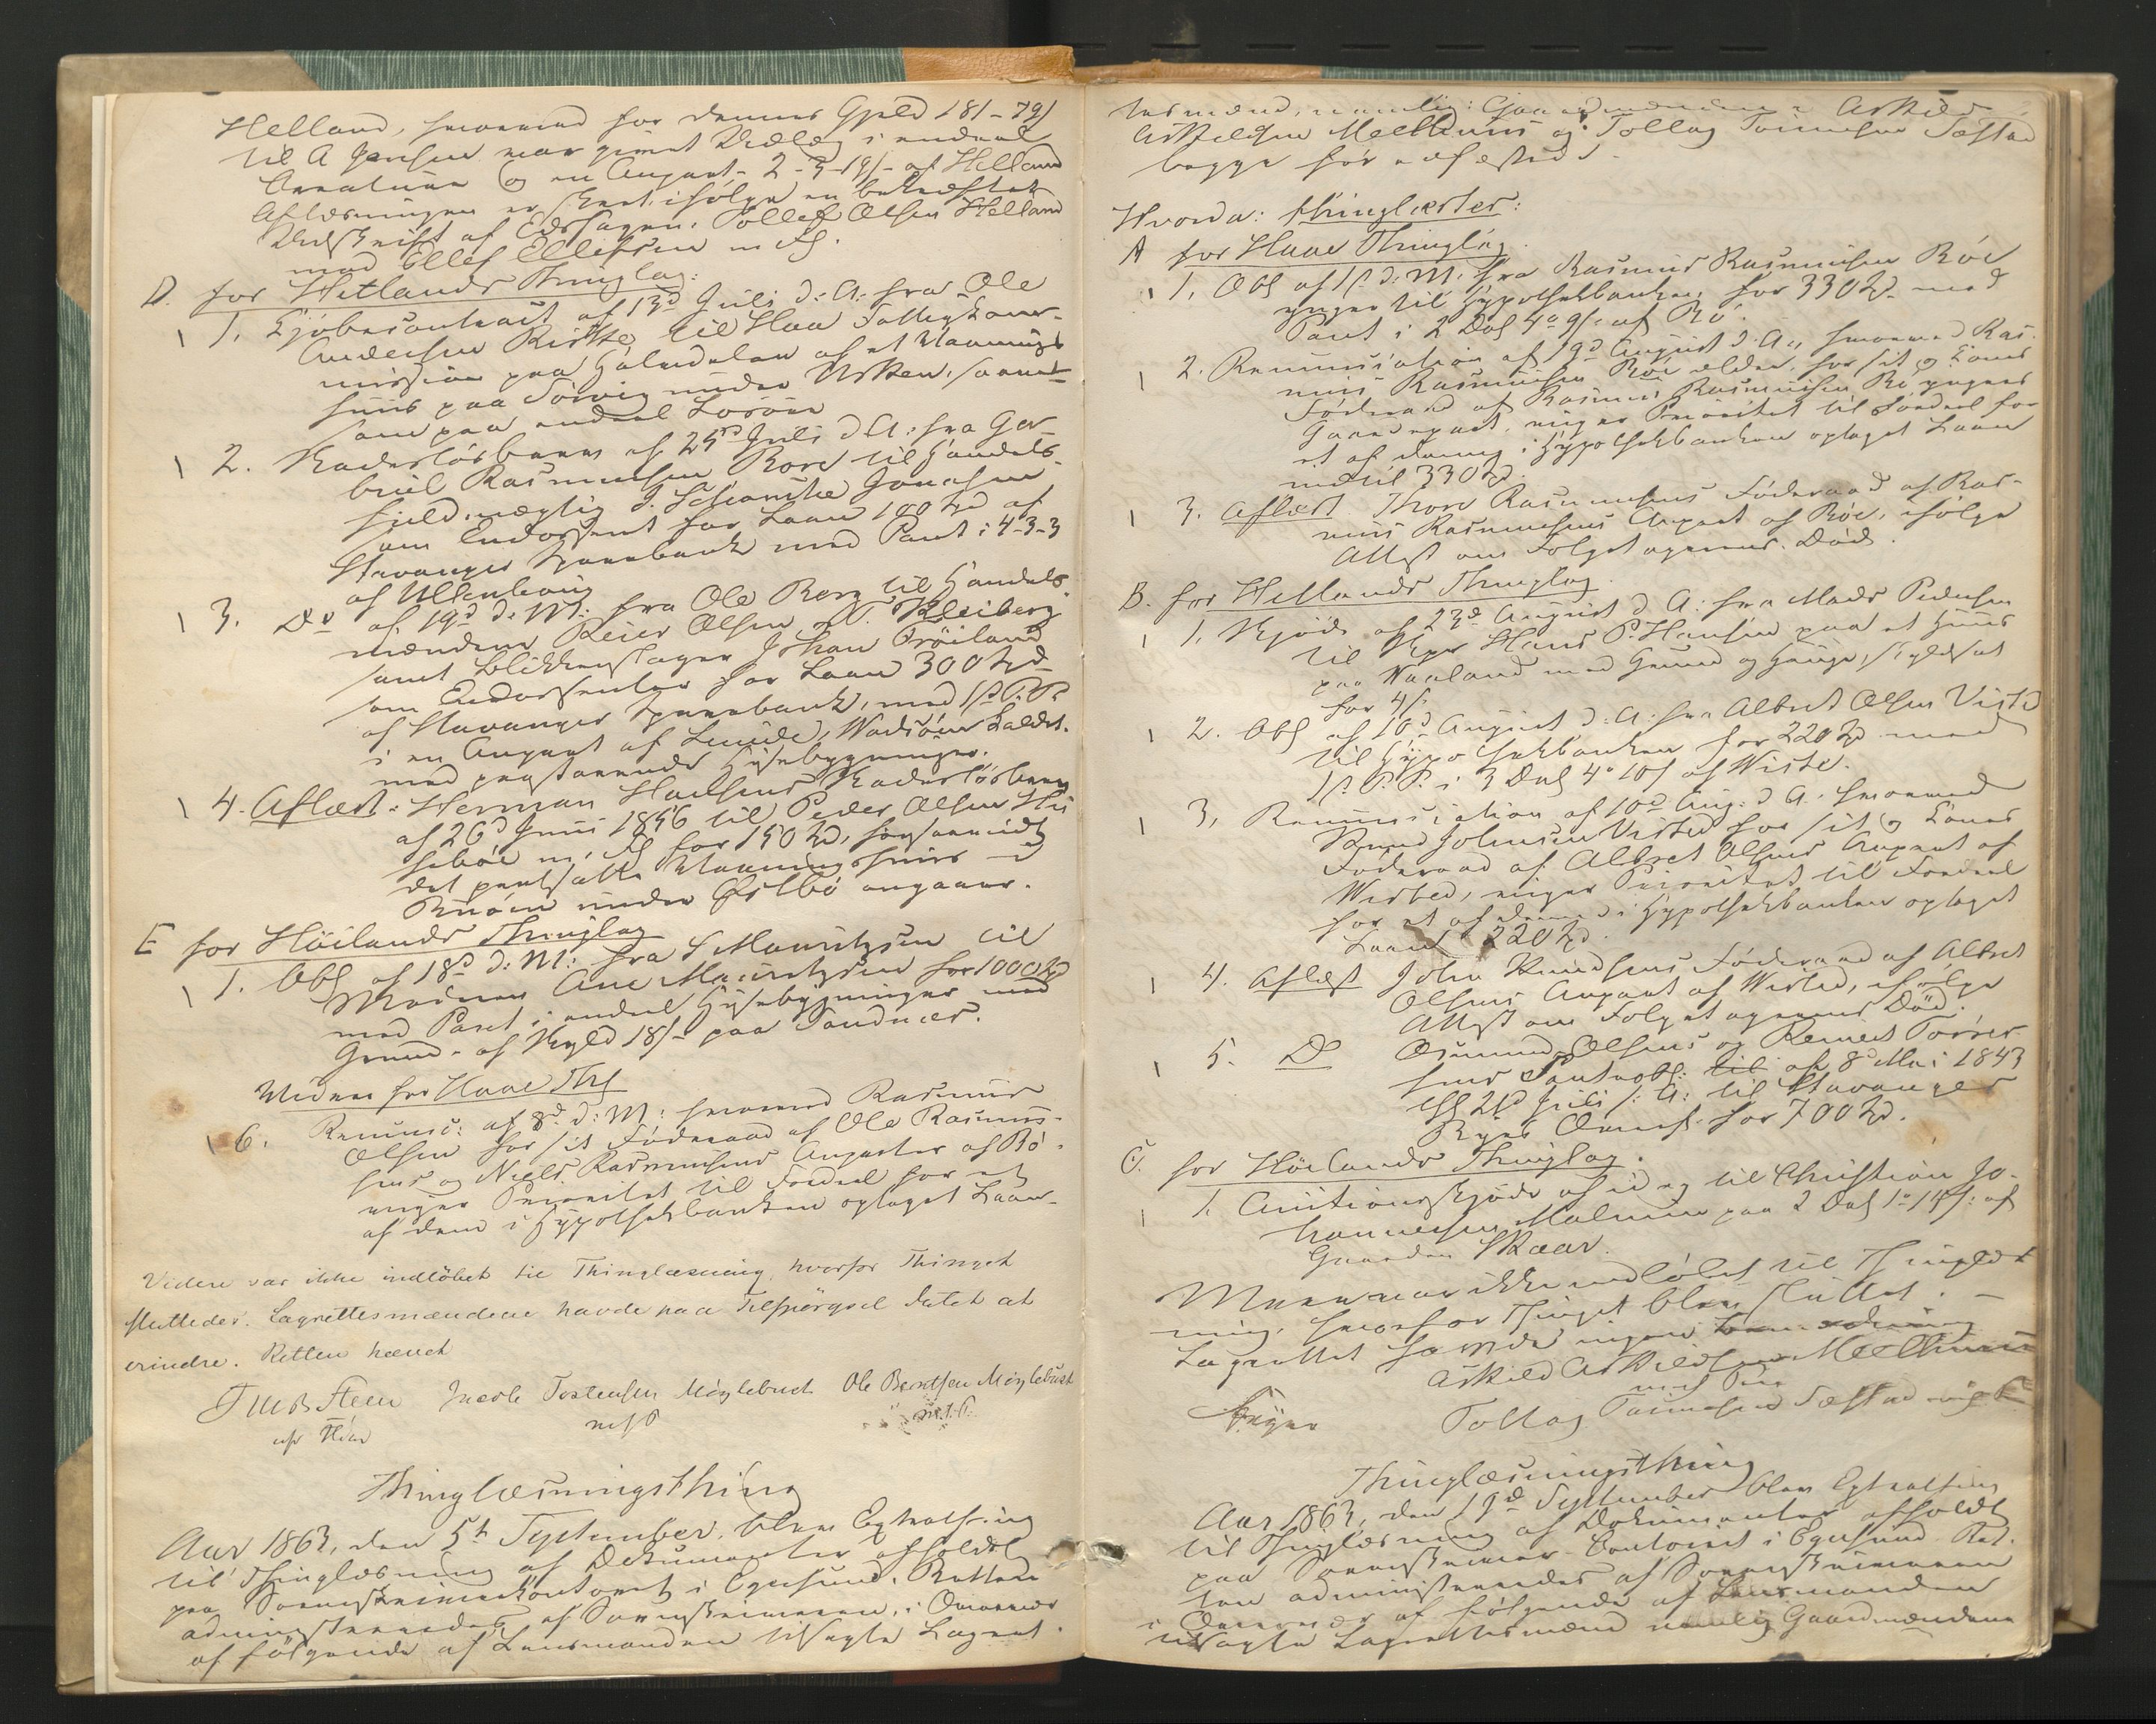 Helland, hvorved for dennes Gjeld 181 - 79/
til A Jensen var givet Udlæg i endeel
Creaturer og en Anpart - 2-3-19/- af Helland
Aflæsningen er skeet ifølge en bekræftet
Udskrift af Edssagen: Tollef Olsen Helland
mod Ellef Ellefsen m. Fl.
D. for Hetlands Thinglag:
1. Kjøbecontract af 13d Juli d: A: fra Ole
Andersen Riske til Haa Fattigkom-
mission paa Halvdelen af et Vaanings
huus paa under Usken, samt
som paa endeel Løsøre
2. Skadesløsbrev af 25d Juli d A: fra Ga-
briel Rasmussen Rore til Handels-
fuldmægtig J. Johansen
som Endossent for Laan 100 Spd af
Stavanger Sparebank med Pant i 4-3-3
af Ullenhoug
3. Do af 19d d. M: fra Ole Berg til Handels-
mændene Reier Olsen og T. Kleiberg
samt Blikkenslager Johan Frøiland
som Endossenter for Laan 300 Spd
af Stavanger Sparebank, med 1st P. Pt
i en Anpart af Lunde, Wadsøen kaldet.
med paastaaende Huusebygninger.
4. Aflæst: Herman Skadesløsbrev
af 26d Juni 1856 til Peder Olsen
m. Fl for 150 Spd, forsaavidt
det pantsatte Vaaningshuus i
under Østbø angaaer.
E for Høilands Thinglag
1. Obl af 18d d. M: fra S Mauritzsen til
Madame Ane Mauritzsen for 1000 Spd
med Pant i endeel Huusebygninger med
Grund - af Skyld 18/- paa Sandnæs.
Videre for Haae Thgl
6. Renunc: af 8d d: M: hvorved Rasmus
Olsen for sit Føderaad af Ole Rasmus-
sens og Niels Rasmussens Anparter af Bø
viger Prioritet til Fordeel for et
af dem i Hypothekbanken optaget Laan
Videre var ikke indløbet til Thinglæsning, hvorfor Thinget
sluttedes. Lagrettesmændene havde paa Tilspørgsel Intet at
erindre. Retten hævet
Steen Jacob Tostensen Møglebust Ole Berntsen Møglebust
m f P m. f. P.
Thinglæsningsthing
Aar 1863, den 5te September, blev Extrathing
til Thinglæsning af Dokumenter afholdt
paa Sorenskriverkontoret i Egersund. Retten
administreredes af Sorenskriveren, i Overvær
af følgende af Lensmanden tilsagte Lagret-
tesmænd, nemlig: Gaardmændene Askild
Askildsen Mellomus og Tollag Tønnesen Sæstad
begge før edfæstede.
Hvorda: thinglæstes:
A for Haae Thinglag.
1. Obl af 1st d. M. fra Rasmus Rasmussen Bøe
yngre til Hypothekbanken for 330 Spd med
Pant i 2 Dal 4 o 9/ af Bø.
2. Renunciation af 19d August d. A., hvorved Ras-
mus Rasmussen Bøe ældre, for sit og Kones
Føderaad af Rasmus Rasmussen Bø yngres
Gaardepart, viger Prioritet til Fordeel for
et af denne i Hypothekbanken optaget Laan
indtil 330 Spd.
3. Aflæst Thore Rasmussens Føderaad af Ras-
mus Rasmussens Anpart af Bøe, ifølge
Attest om Folgetagerens Død.
B. for Hetlands Thinglag.
1. Skjøde af 23d August d. A: fra Mads Pedersen
til Hans P. Hansen paa et Huus
paa Waaland med Grund og Hauge, skyldsat
for 4/.
2. Obl af 10d August d. A: fra Albret Olsen Viste
til Hypothekbanken for 220 Spd med
1st P. P. i 3 Dal 4 o 10/ af Wiste.
3. Renunciation af 10d Aug. d A. hvorved
Knud Johnsen Visted for sit og Kones
Føderaad af Albret Olsens Anpart af
Wisted, viger Prioritet til Fordeel
for et af denne i Hypothekbanken optaget
Laan 220 Spd.
4. Aflæst John Knudsens Føderaad af Albret
Olsens Anpart af Wisted, ifølge
Attest om Folgetagerens Død.
5. Do Osmund Olsens og Reinert Torres-
sens Pantobl: til af 8d Mai 1843
21d Juli s: A: til Stavanger
Byes for 700 Spd.
C. for Høilands Thinglag.
1. Auctionsskjøde af og til Christian Jo-
hannessen Malmin paa 2 Dal 1 o 14/. af
Gaarden Skaar.
Mere var ikke indløbet til Thinglæs-
ning, hvorfor Thinget blev sluttet. -
Lagrettet havde ingen
Askild Askildsen Mellomus
med Pen
Feyer Tollag Tønnesen Sæstad m f P
Thinglæsningsthing
Aar 1863, den 19d September blev Extrathing
til Thinglæsning af Dokumenter afholdt
paa Sorenskriver Contoiret i Egersund. Ret-
ten administreredes af Sorenskriveren
i Overvær af følgende af Lensmanden
tilsagte Lagrettesmænd nemlig Gaardmændene